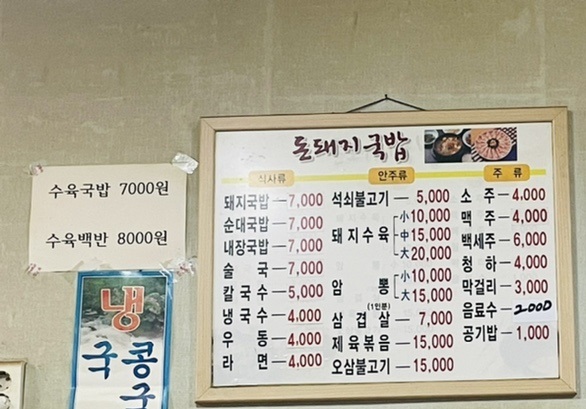 수육국밥 7000원
수육백반 8000원
냉
콩
국
돈돼지국밥
식사류
돼지국밥 — 7,000
순대국밥 — 7,000
내장국밥 — 7,000
술국 — 7,000
칼국수 — 5,000
냉국수 — 4,000
우동 — 4,000
라면 — 4,000
안주류
석쇠불고기 — 5,000
돼지수육 小 10,000
中 15,000
大 20,000
암뽕 小 10,000
大 15,000
(1인분)
삼겹살 — 7,000
제육볶음 — 15,000
오삼불고기 — 15,000
주류
소주 — 4,000
맥주 — 4,000
백세주 — 6,000
청하 — 4,000
막걸리 — 3,000
음료수 — 2000
공기밥 — 1,000